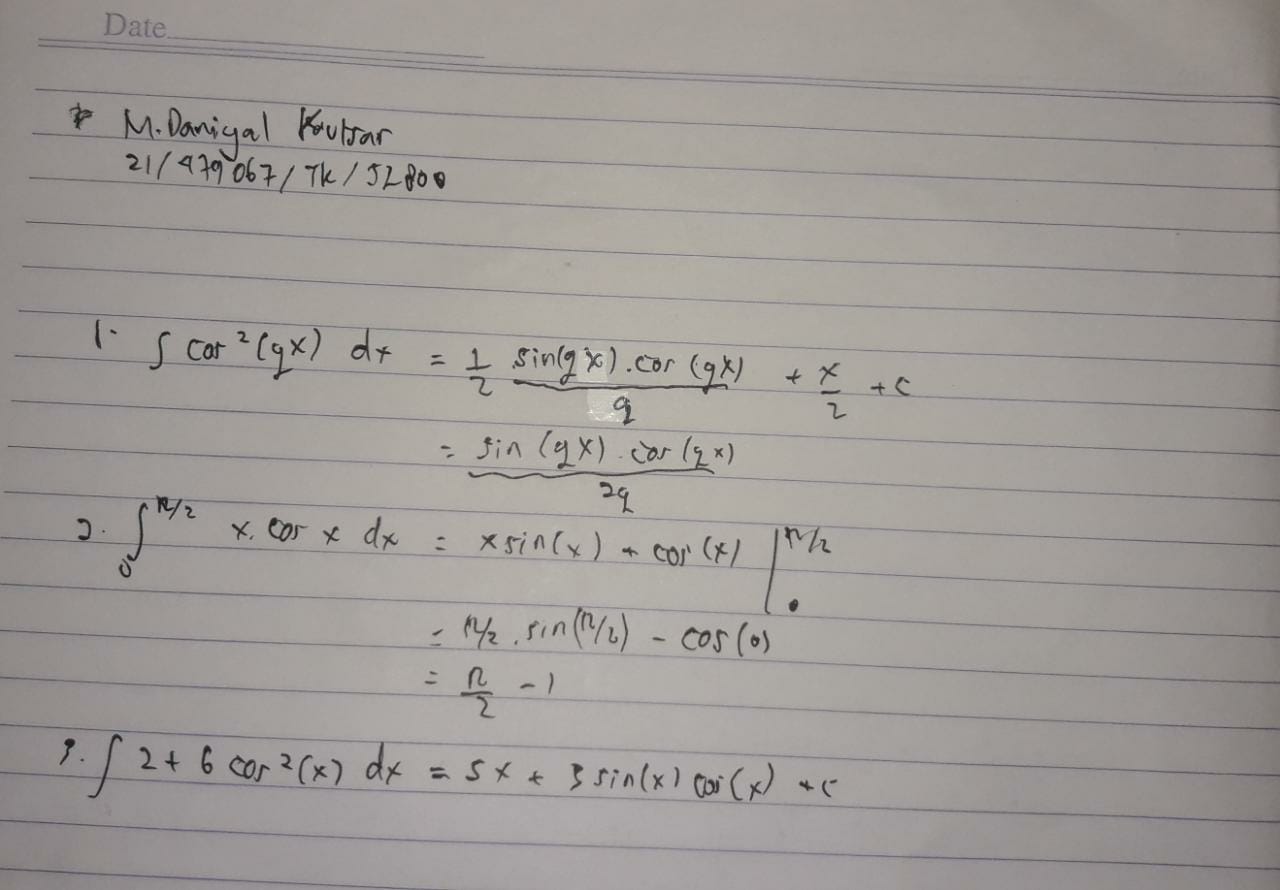 Date
* M. Daniyal Kautsar
21/479067/TK/52800
1. ∫ cos²(qx) dx = 1/2 sin(qx).cos(qx)/q + x/2 + c
= sin(qx).cos(qx)/2q
2. ∫₀^π/2 x. cos x dx = x sin(x) + cos(x) |₀^π/2
= π/2 . sin(π/2) - cos(0)
= π/2 - 1
3. ∫ 2 + 6 cos²(x) dx = 5x + 3 sin(x) cos(x) + c